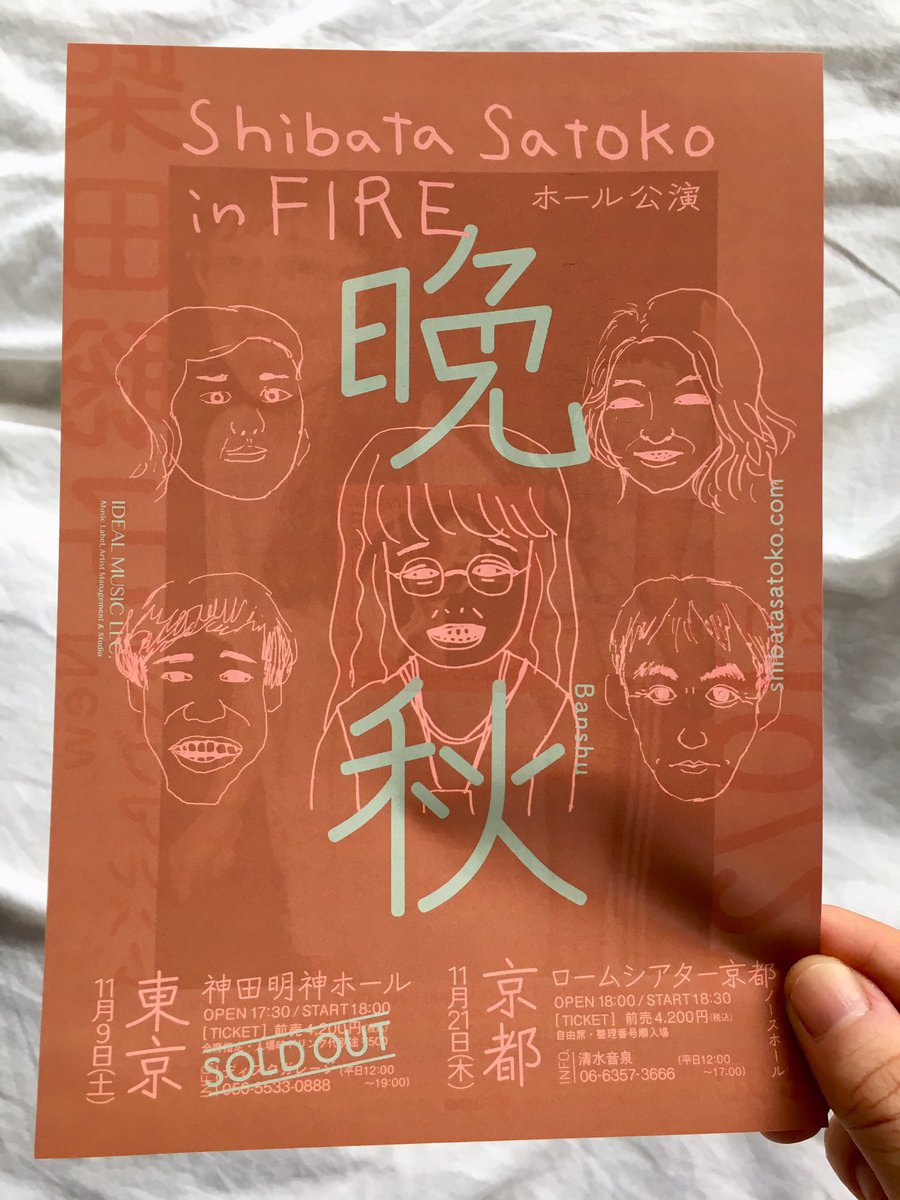 Shibata Satoko
in FIRE
ホール公演
晩秋
Banshu
IDEAL MUSIC LLC.
Music Label, Artist Management & Studio
shibatasatoko.com
11月9日(土)
東京
神田明神ホール
OPEN 17:30 / START 18:00
[TICKET] 前売 4,200円(税込)
SOLD OUT
(平日12:00
〜19:00)
11月21日(木)
京都
ロームシアター京都
ノースホール
OPEN 18:00 / START 18:30
[TICKET] 前売 4,200円(税込)
自由席・整理番号順入場
INFO.
清水音泉
06-6357-3666
(平日12:00
〜17:00)